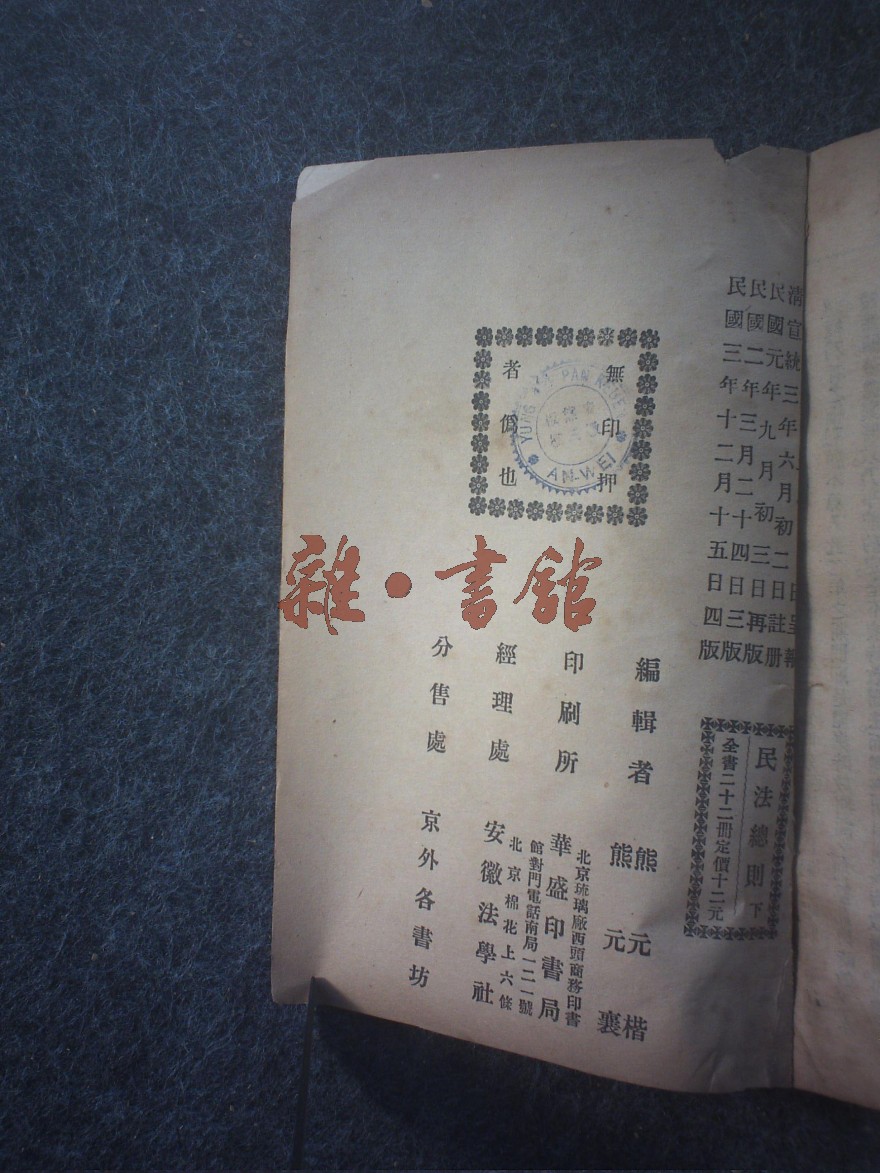 清宣統三年六月初二日呈報
民國元年九月初三日註册
民國二年三月二十四日再版
民國三年十二月十五日四版
民法總則 下
全書二十二冊定價十二元
無印押
者僞也
YUNG
PAN
AN-WEI
雜·書館
編輯者 熊元楷
熊元襄
印刷所 華盛印書局
北京琉璃廠西頭商務印書
館對門電話南局一二一號
經理處 安徽法學社
北京棉花上六條
分售處 京外各書坊